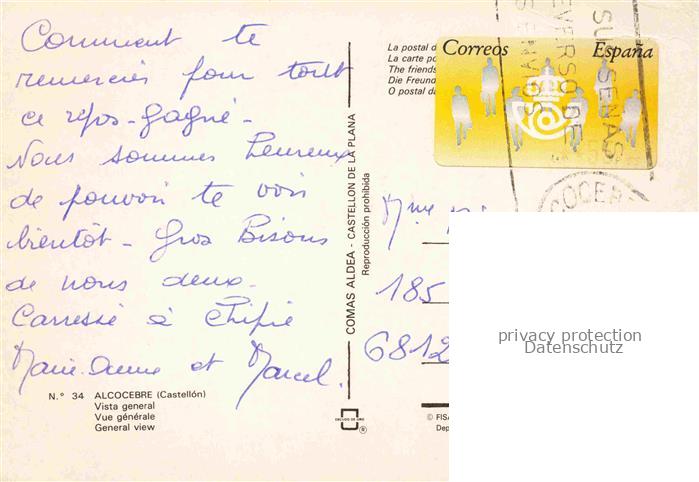 Comment te
remercier pour tout
ce repos-gagné-
Nous sommes heureux
de pouvoir te voir
bientôt - Gros Bisous
de nous deux.
Carresse à Chipie
Marie-Anne et Marcel.
N.° 34 ALCOCEBRE (Castellón)
Vista general
Vue générale
General view
COMAS ALDEA - CASTELLON DE LA PLANA
Reproducción prohibida
ESCUDO DE ORO
®
La postal d
La carte po
The friends
Die Freund
O postal da
Correos España
SUS SENAS
EVERSO DE
S ENVIOS
OCEB
Mme
185
6812
© FISA
Dep
privacy protection
Datenschutz